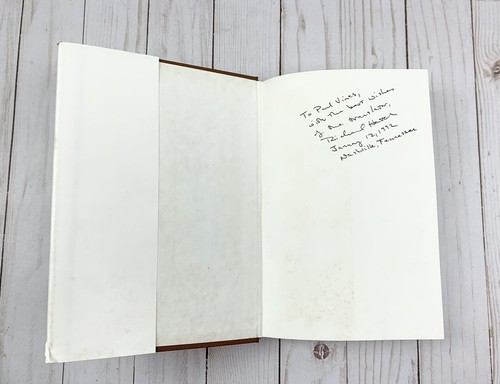 To Paul Vines,
with the best wishes
of the translator,
Richard
January 12, 1992
Nashville, Tennessee